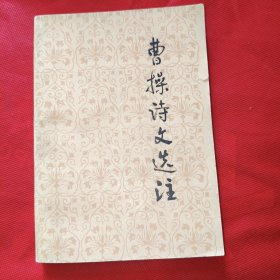 曹操诗文选注